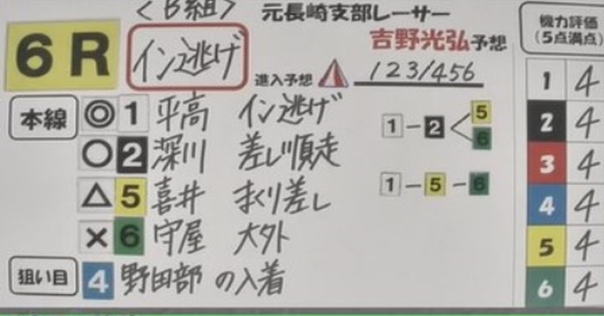 〈B組〉
元長崎支部レーサー
6R イン逃げ 吉野光弘予想
進入予想 123/456
本線 ◎ 1 平高 イン逃げ
○ 2 深川 差し順走
△ 5 喜井 まくり差し
× 6 守屋 大外
狙い目 4 野田部 の入着
1-2<5
6
1-5-6
機力評価
(5点満点)
1 4
2 4
3 4
4 4
5 4
6 4